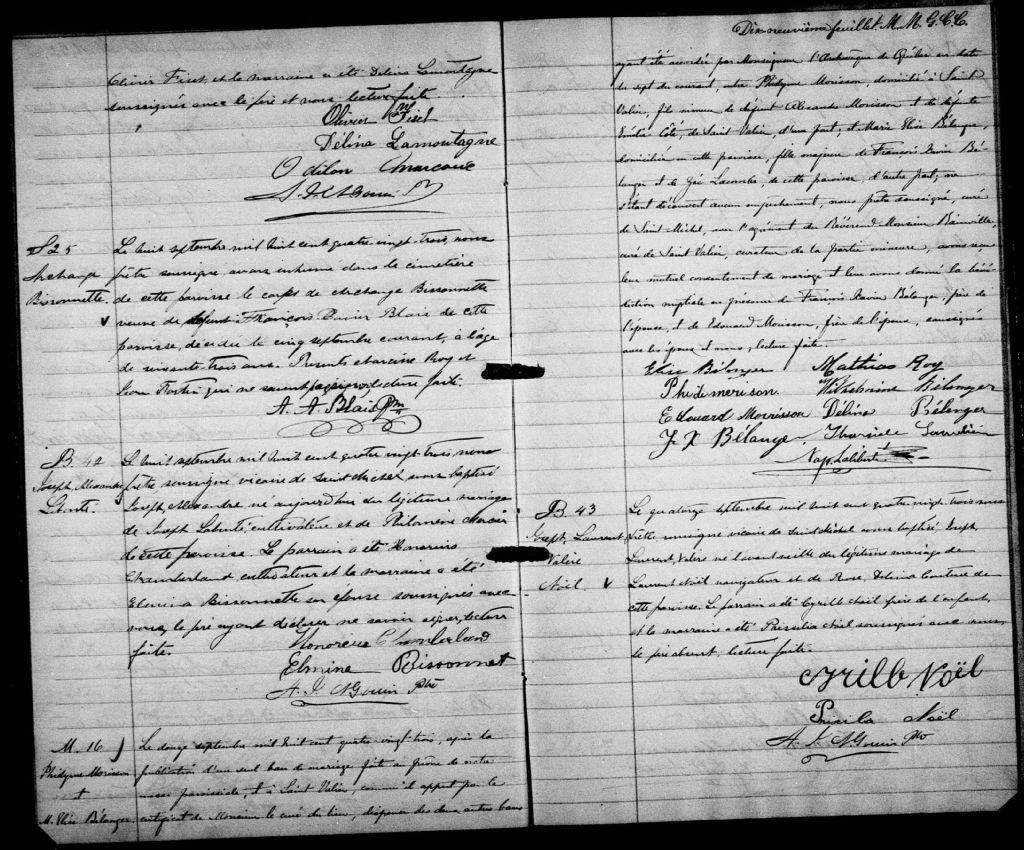 Olivier Fiset et la marraine a été Délina Lamontagne
soussignés avec le père et nous. Lecture faite
Olivier Fiset
Délina Lamontagne
Odilon Marcoux
S 25
Archange
Bissonnette.
Le huit septembre mil huit cent quatre vingt-trois, nous
prêtre soussigné avons inhumé dans le cimetière
de cette paroisse le corps de Archange Bissonnette
veuve de défunt François Xavier Blais de cette
paroisse, décédée le cinq septembre courant, à l'âge
de soixante trois ans. Présents Antoine Roy et
Jean Fortin qui ne savent pas signer lecture faite.
A. A. Blais Ptre
B. 42
Joseph Alexandre
Labrie.
Le huit septembre mil huit cent quatre vingt trois, nous
prêtre soussigné vicaire de Saint Michel avons baptisé
Joseph Alexandre né aujourd'hui du légitime mariage
de Joseph cultivateur et de Philomène Mercier
de cette paroisse. Le parrain a été Honorius
Chamberland cultivateur et la marraine a été
Elmina Bissonnette son épouse soussignés avec
nous, le père ayant déclaré ne savoir signer, lecture
faite.
Honorius Chamberland
Elmina Bissonnet
A. J. N Gouin Ptre
M. 16
Philyme Morisson
et
M. Elise Bélanger.
Le douze septembre mil huit cent quatre vingt trois, après la
publication d'un seul ban de mariage faite au prône de notre
messe paroissiale, et à Saint Valier, comme il appert par le
certificat de Monsieur le curé du lieu, dispense des deux autres bans
Dix-neuvième feuillet. M. M. G. C. C.
ayant été accordée par Monseigneur l'Archevêque de Québec en date
du sept du courant, entre Philyme Morisson, domicilié à Saint
Valier, fils mineur de défunt Alexandre Morisson et de défunte
Emélie Côté, de Saint Valier, d'une part, et Marie Elise Bélanger,
domiciliée en cette paroisse, fille majeure de François Xavier Bé-
langer et de Lacombe, de cette paroisse, d'autre part; ne
s'étant découvert aucun empêchement, nous prêtre soussigné, curé
de Saint Michel, avec l'agrément du Révérend Monsieur Bainville,
curé de Saint Valier, curateur de la partie mineure, avons reçu
leur mutuel consentement de mariage et leur avons donné la béné-
diction nuptiale en présence de François Xavier Bélanger, père de
l'épouse, et de Edouard Morisson, frère de l'époux, soussignés
avec les époux et nous, lecture faite.
Elise Bélanger Mathias Roy
Phidimerison. Wilhelmine Bélanger
Edouard Morrisson Délina Bélanger
F X Bélanger
Nap. Laliberté
B. 43
Joseph, Laurent,
Valère
Noël.
Le quatorze septembre mil huit cent quatre vingt trois nous
prêtre soussigné vicaire de Saint Michel avons baptisé Joseph,
Laurent, Valère né l'avant veille du légitime mariage de
Laurent Noël navigateur et de Rose Délina Couture de
cette paroisse. Le parrain a été Cyrille Noël frère de l'enfant,
et la marraine a été Noël soussignés avec nous,
le père absent, lecture faite.
Cyrille Noël
Noël
A. J. N Gouin Ptre